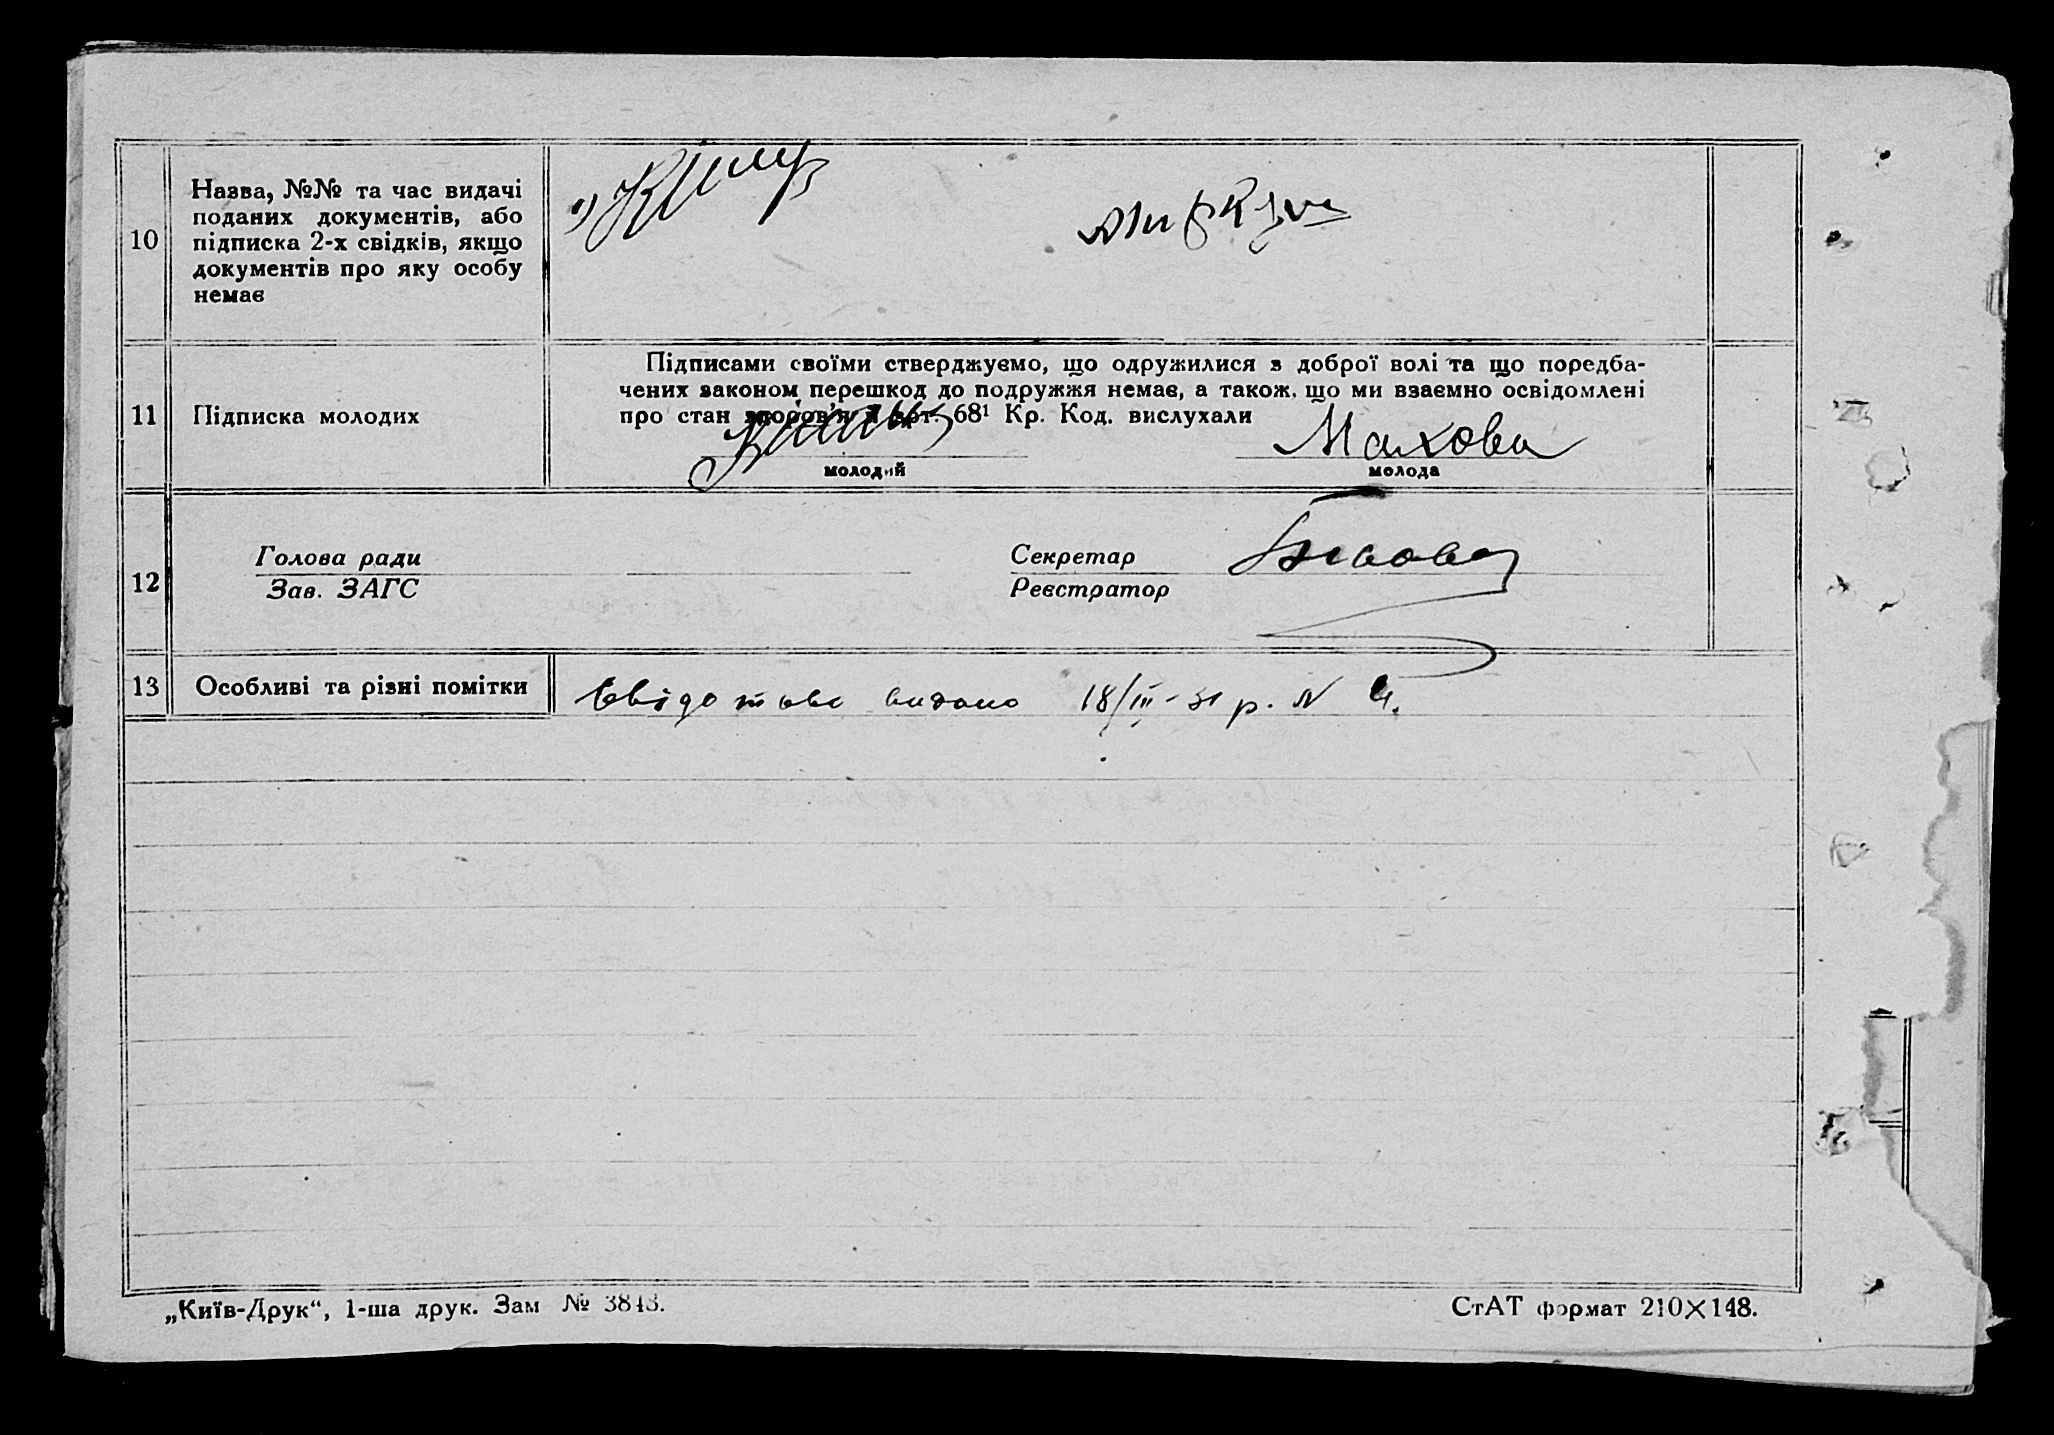 10
Назва, №№ та час видачі
поданих документів, або
підписка 2-х свідків, якщо
документів про яку особу
немає
11
Підписка молодих
Підписами своїми стверджуємо, що одружилися з доброї волі та що поредба-
чених законом перешкод до подружжя немає, а також, що ми взаємно освідомлені
про стан здоров'я й арт. 68¹ Кр. Код. вислухали
Махова
молодий
молода
12
Голова ради
Зав. ЗАГС
Секретар
Реєстратор
13
Особливі та різні помітки
Свідотво видано 18/III-31 р. N 4.
„Київ-Друк“, 1-ша друк. Зам № 3843.
СтАТ формат 210×148.